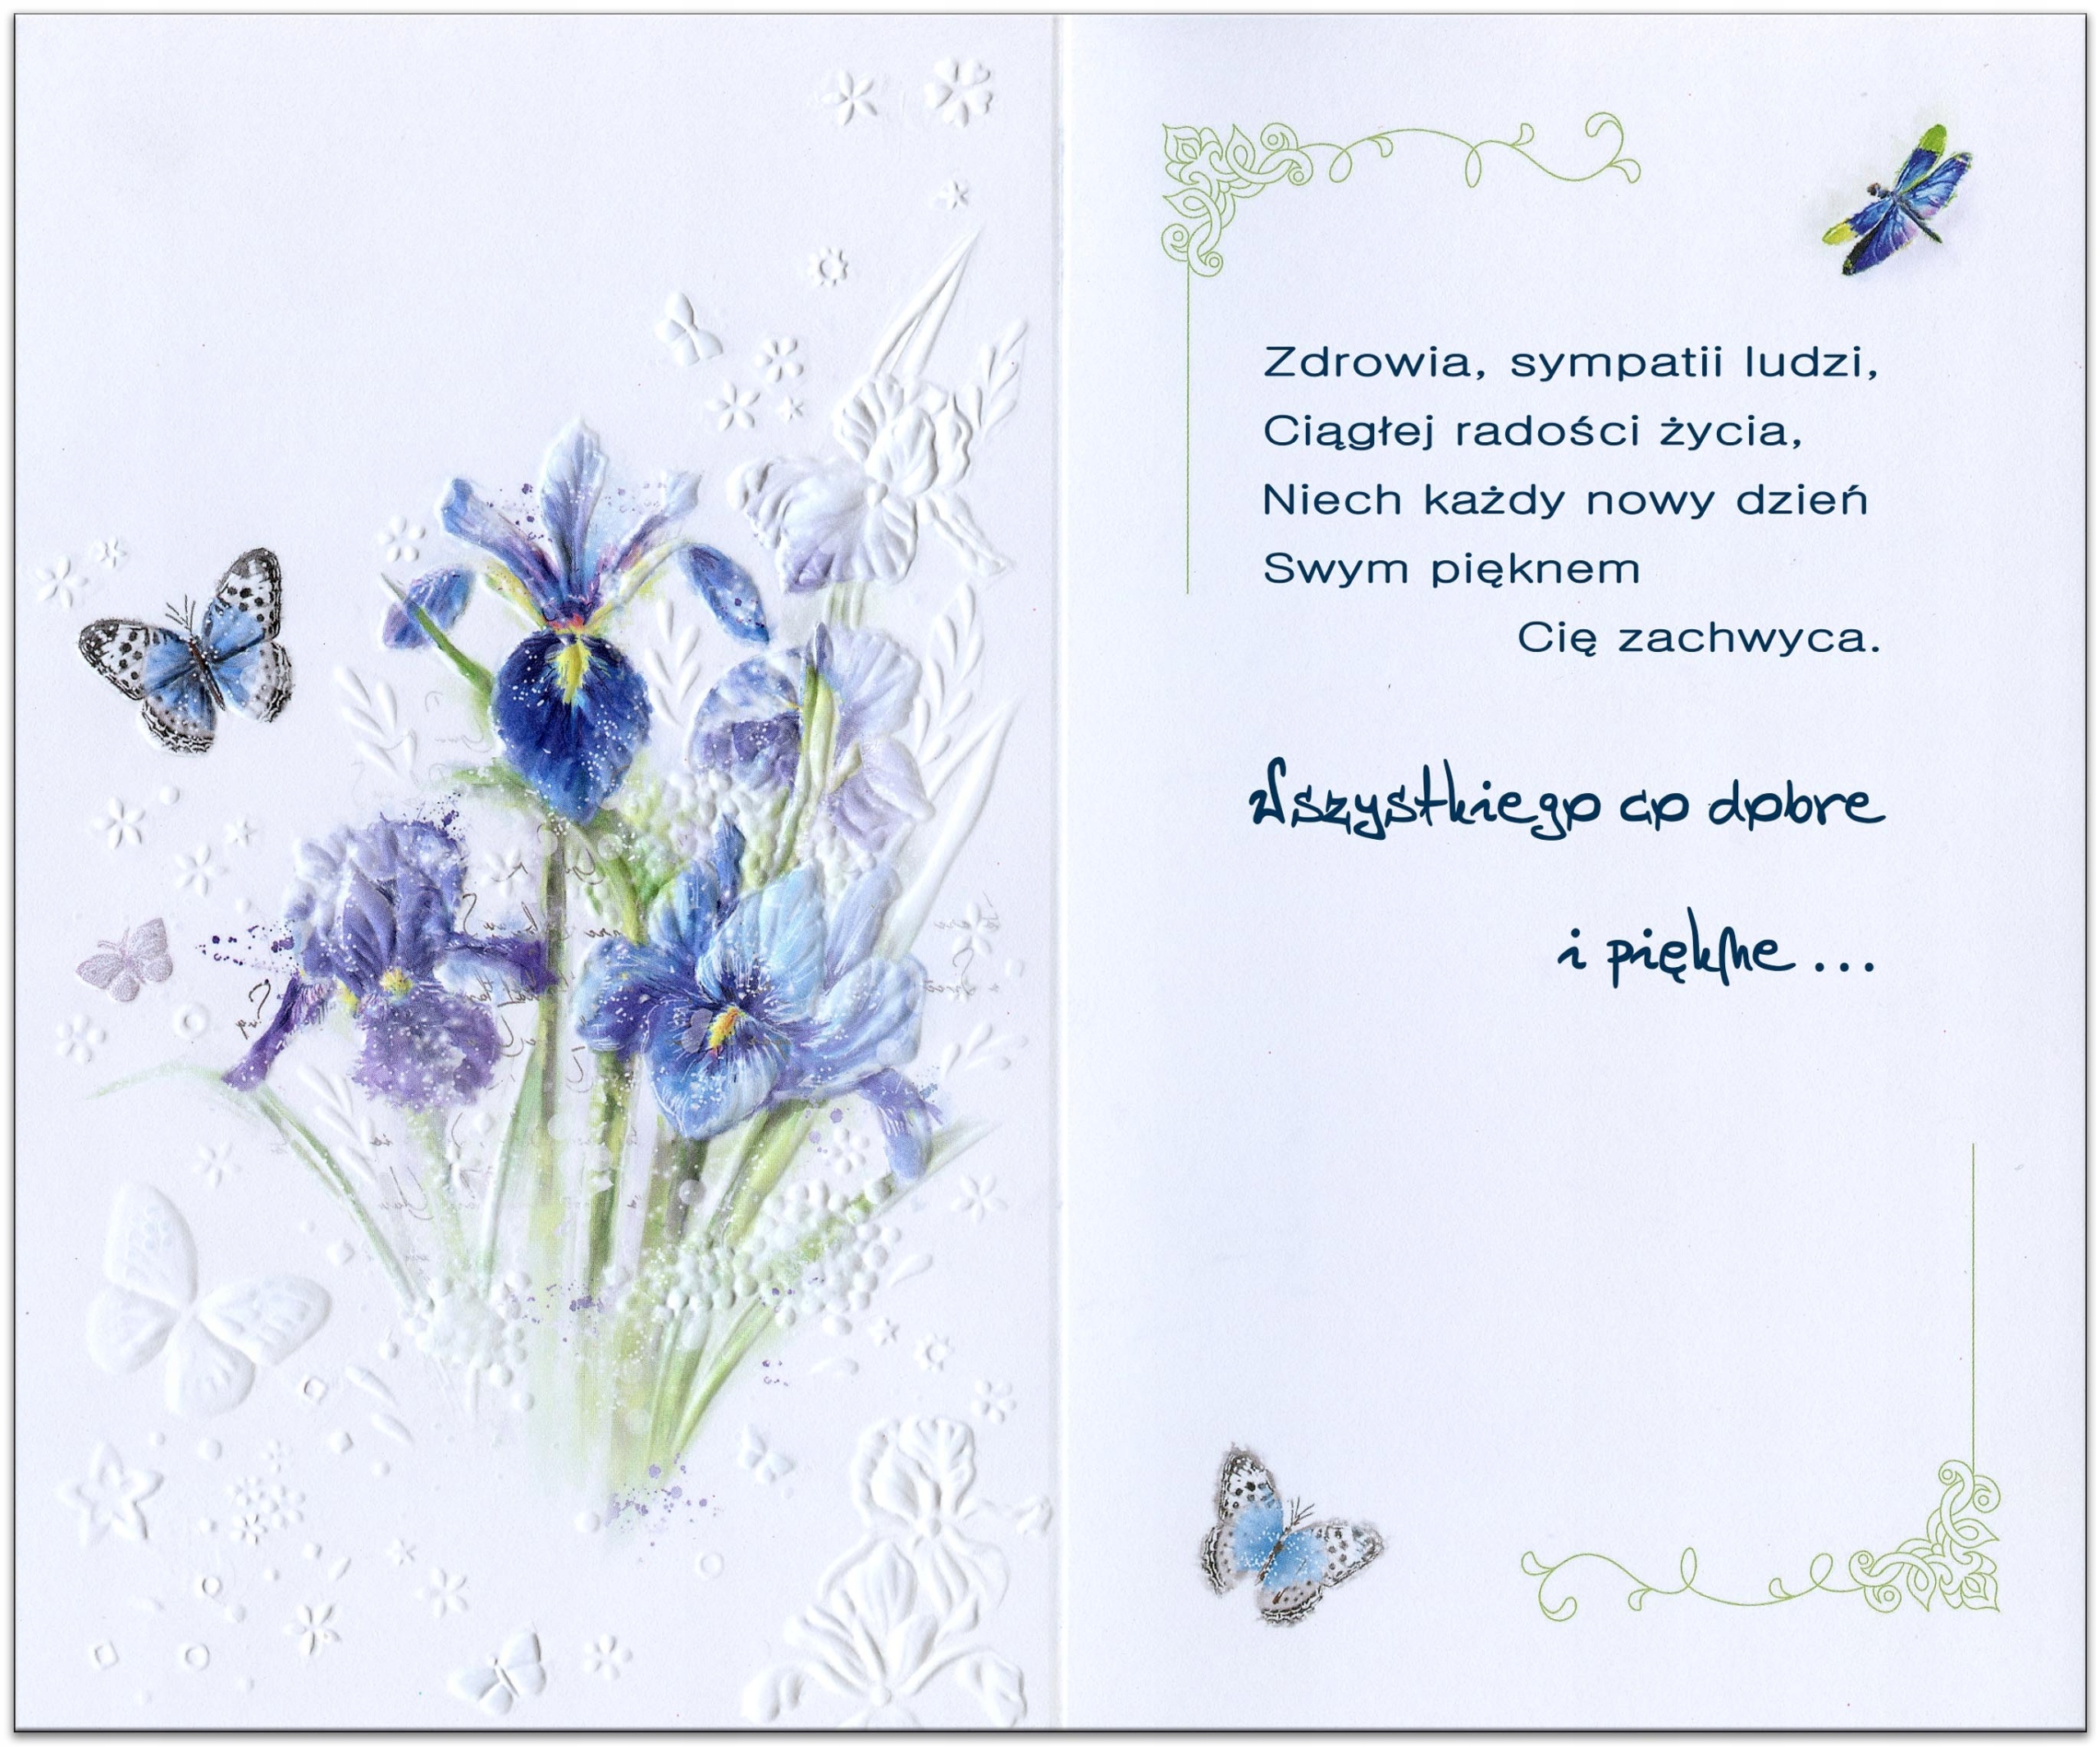 Zdrowia, sympatii ludzi,
Ciągłej radości życia,
Niech każdy nowy dzień
Swym pięknem
Cię zachwyca.
Wszystkiego co dobre
i piękne...